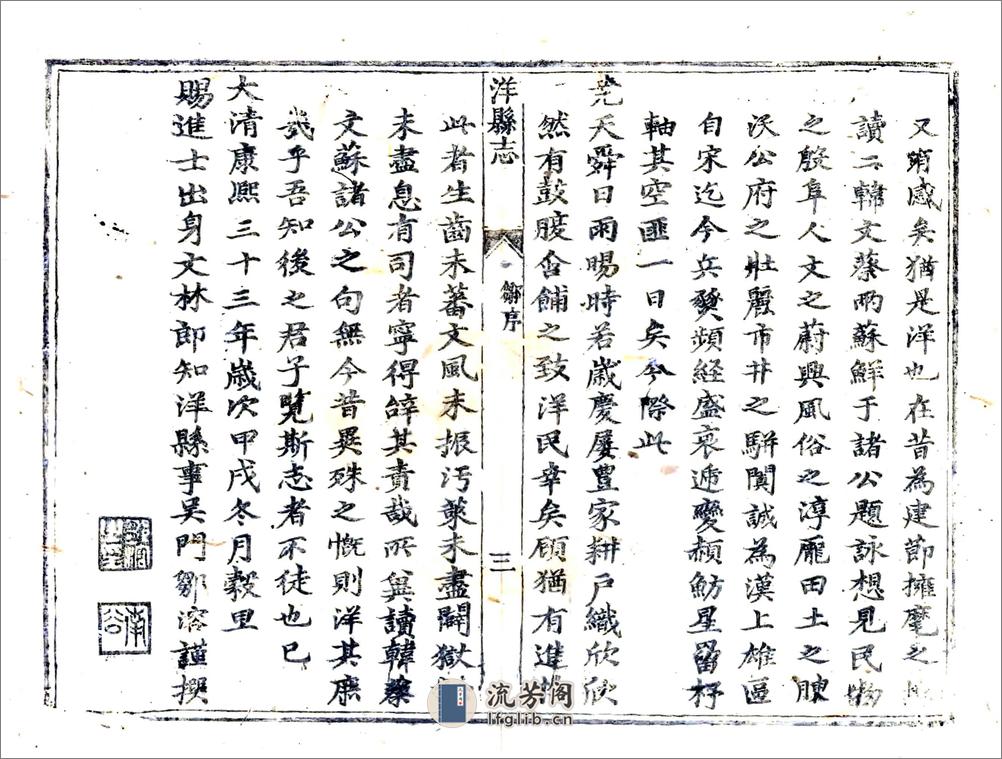 又覩感矣猶是洋也在昔為建節擁麾之
讀二韓文蔡兩蘇鮮于諸公題詠想見民物
之殷阜人文之蔚興風俗之淳龎田土之腴
沃公府之壯麗市井之駢闐誠為漢上雄區
自宋迄今兵燹頻經盛衰遞變赬魴星罶杼
軸其空匪一日矣今際此
堯天舜日雨暘時若歲慶屢豊家耕戶織欣欣
然有鼓腹含餔之致洋民幸矣顧猶有進
洋縣志
鄒序
三
此者生齒未蕃文風未振汚萊未盡闢獄
未盡息有司者寧得辭其責哉所兾讀韓蔡
文蘇諸公之句無今昔異殊之慨則洋其庶
幾乎吾知後之君子覽斯志者不徒也已
大清康熙三十三年歲次甲戌冬月穀旦
賜進士出身文林郎知洋縣事吳門鄒溶謹撰
流芳阁
lfglib.cn